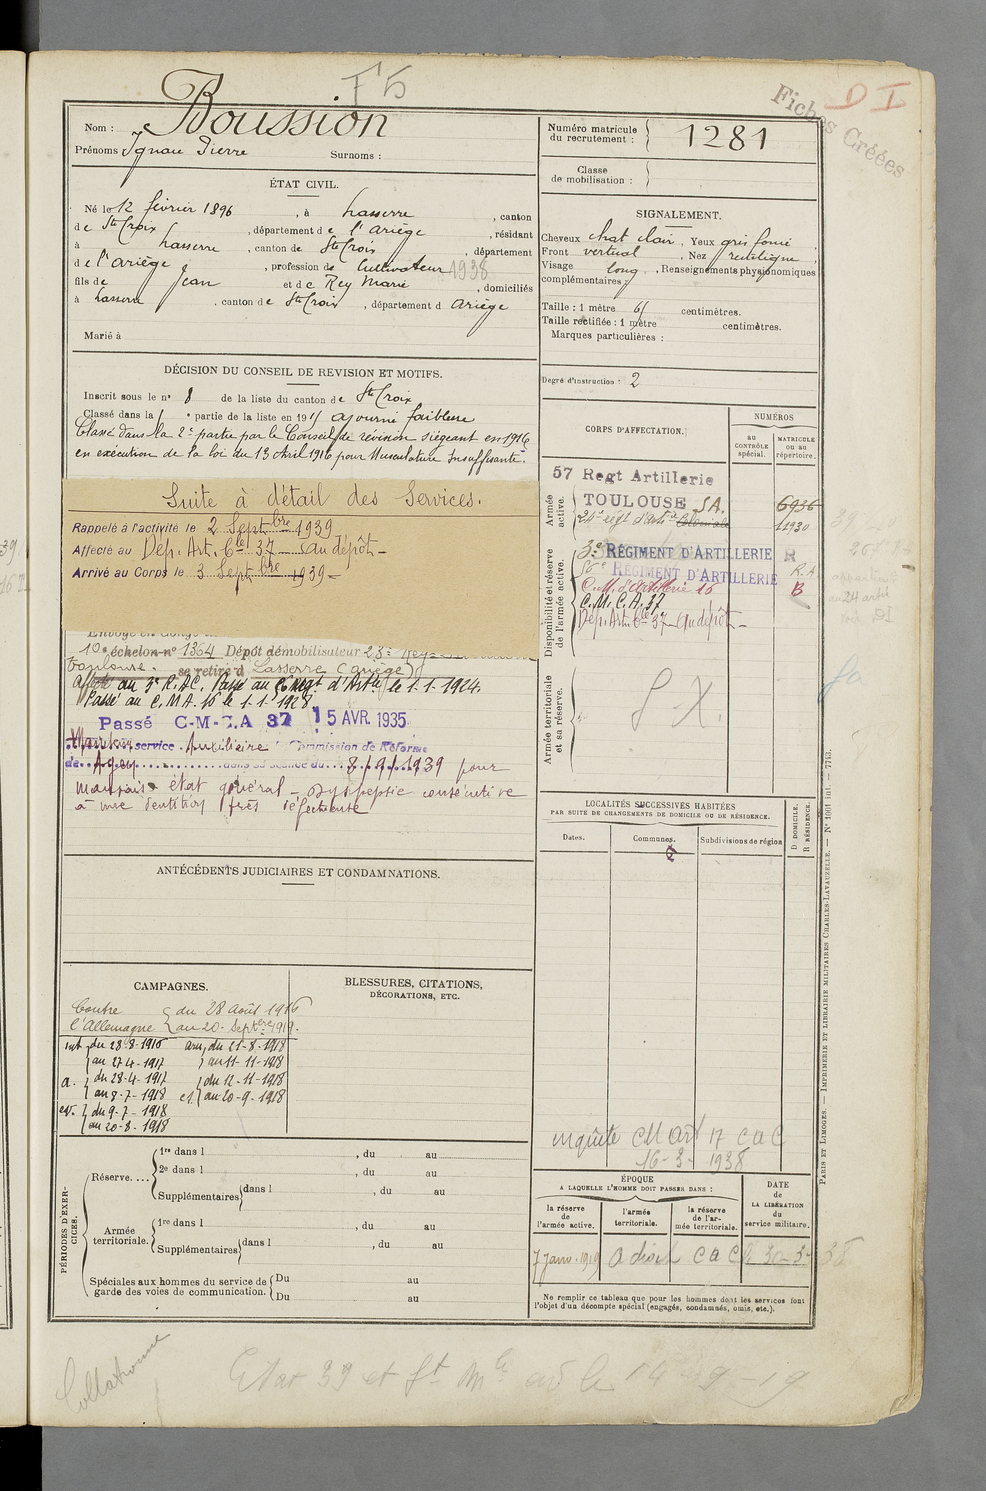 F5
D I
Fiches Créées
Nom : Boussion
Prénoms Ignau Pierre Surnoms :
Numéro matricule du recrutement : 1281
Classe de mobilisation :
ÉTAT CIVIL.
Né le 12 février 1896, à Lasserre, canton
de Ste Croix, département de l'Ariège, résidant
à Lasserre, canton de Ste Croix, département
de l'Ariège, profession de Cultivateur 1938
fils de Jean et de Rey Marie, domiciliés
à Lasserre, canton de Ste Croix, département d Ariège
Marié à
SIGNALEMENT.
Cheveux chat clair, Yeux gris foncé,
Front vertical, Nez rectiligne,
Visage long, Renseignements physionomiques
complémentaires :
Taille : 1 mètre 61 centimètres.
Taille rectifiée : 1 mètre centimètres.
Marques particulières :
Degré d'instruction : 2
DÉCISION DU CONSEIL DE REVISION ET MOTIFS.
Inscrit sous le n° 8 de la liste du canton de Ste Croix
Classé dans la 1 e partie de la liste en 1915 ajourné faiblesse
Classé dans la 2e partie par le Conseil de révision siégeant en 1916
en exécution de la loi du 13 Avril 1916 pour Musculature Insuffisante.
Suite à détail des Services.
Rappelé à l'activité le 2 Septbre 1939
Affecté au Dép. Art. 6le 37 au dépôt
Arrivé au Corps le 3 Septbre 1939
10e échelon n° 1364 Dépôt démobilisateur 23e
Toulouse. se retire d Lasserre (Ariège)
Affecté au 3e R.A.C. Passé au Regt d'Artie le 1.1.1924.
Passé au C.M.A. 16 le 1.1.1928
Passé C-M-C.A 37 15 AVR. 1935
Maintenu service Auxiliaire Commission de Réforme
de Agen dans sa séance du 8/9/1939 pour
mauvais état général - Dyspepsie consécutive
à une dentition très défectueuse
CORPS D'AFFECTATION.
NUMÉROS
au CONTRÔLE spécial.
MATRICULE ou au répertoire.
Armée active.
57 Regt Artillerie
TOULOUSE S.A. 6936
24e régt d'artie Coloniale 11930
Disponibilité et réserve de l'armée active.
3e RÉGIMENT D'ARTILLERIE R
RÉGIMENT D'ARTILLERIE R.A
C.M. d'Artillerie 16 B
C.M.C.A. 37
Dép. Art. 6le 37 au dépôt
Armée territoriale et sa réserve.
LOCALITÉS SUCCESSIVES HABITÉES
PAR SUITE DE CHANGEMENTS DE DOMICILE OU DE RÉSIDENCE.
Dates.
Communes.
Subdivisions de région
D DOMICILE.
R RÉSIDENCE.
ANTÉCÉDENTS JUDICIAIRES ET CONDAMNATIONS.
CAMPAGNES.
Contre l'Allemagne du 28 Août 1916
au 20 Septbre 1919.
int du 28-8-1916
au 27-4-1917
a. du 28-4-1917
au 8-7-1918
ev. du 9-7-1918
au 20-8-1918
arm. du 21-8-1918
au 11-11-1918
du 12-11-1918
au 20-9-1918
BLESSURES, CITATIONS,
DÉCORATIONS, ETC.
enquête CM Art 17 CaC
16-3-1938
PÉRIODES D'EXERCICES.
Réserve.... 1re dans l , du au
2e dans l , du au
Supplémentaires dans l , du au
Armée territoriale. 1re dans l , du au
Supplémentaires dans l , du au
Spéciales aux hommes du service de garde des voies de communication. Du au
Du au
ÉPOQUE
A LAQUELLE L'HOMME DOIT PASSER DANS :
la réserve de l'armée active.
l'armée territoriale.
la réserve de l'armée territoriale.
DATE DE LA LIBÉRATION du service militaire.
Ne remplir ce tableau que pour les hommes dont les services font
l'objet d'un décompte spécial (engagés, condamnés, omis, etc.).
PARIS ET LIMOGES. — IMPRIMERIE ET LIBRAIRIE MILITAIRES CHARLES-LAVAUZELLE. — N° 1001 int. — 7743.
Collationné